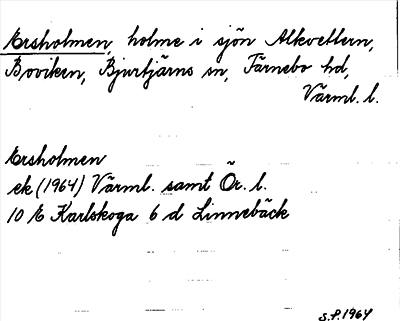 Ersholmen, holme i sjön Alkvettern,
Boviken, Bjurtjärns sn, Färnebo hd,
Värml. l.
Ersholmen
ek (1964) Värml. samt Ör. l.
10 E Karlskoga 6 d Linnebäck
S.P. 1964